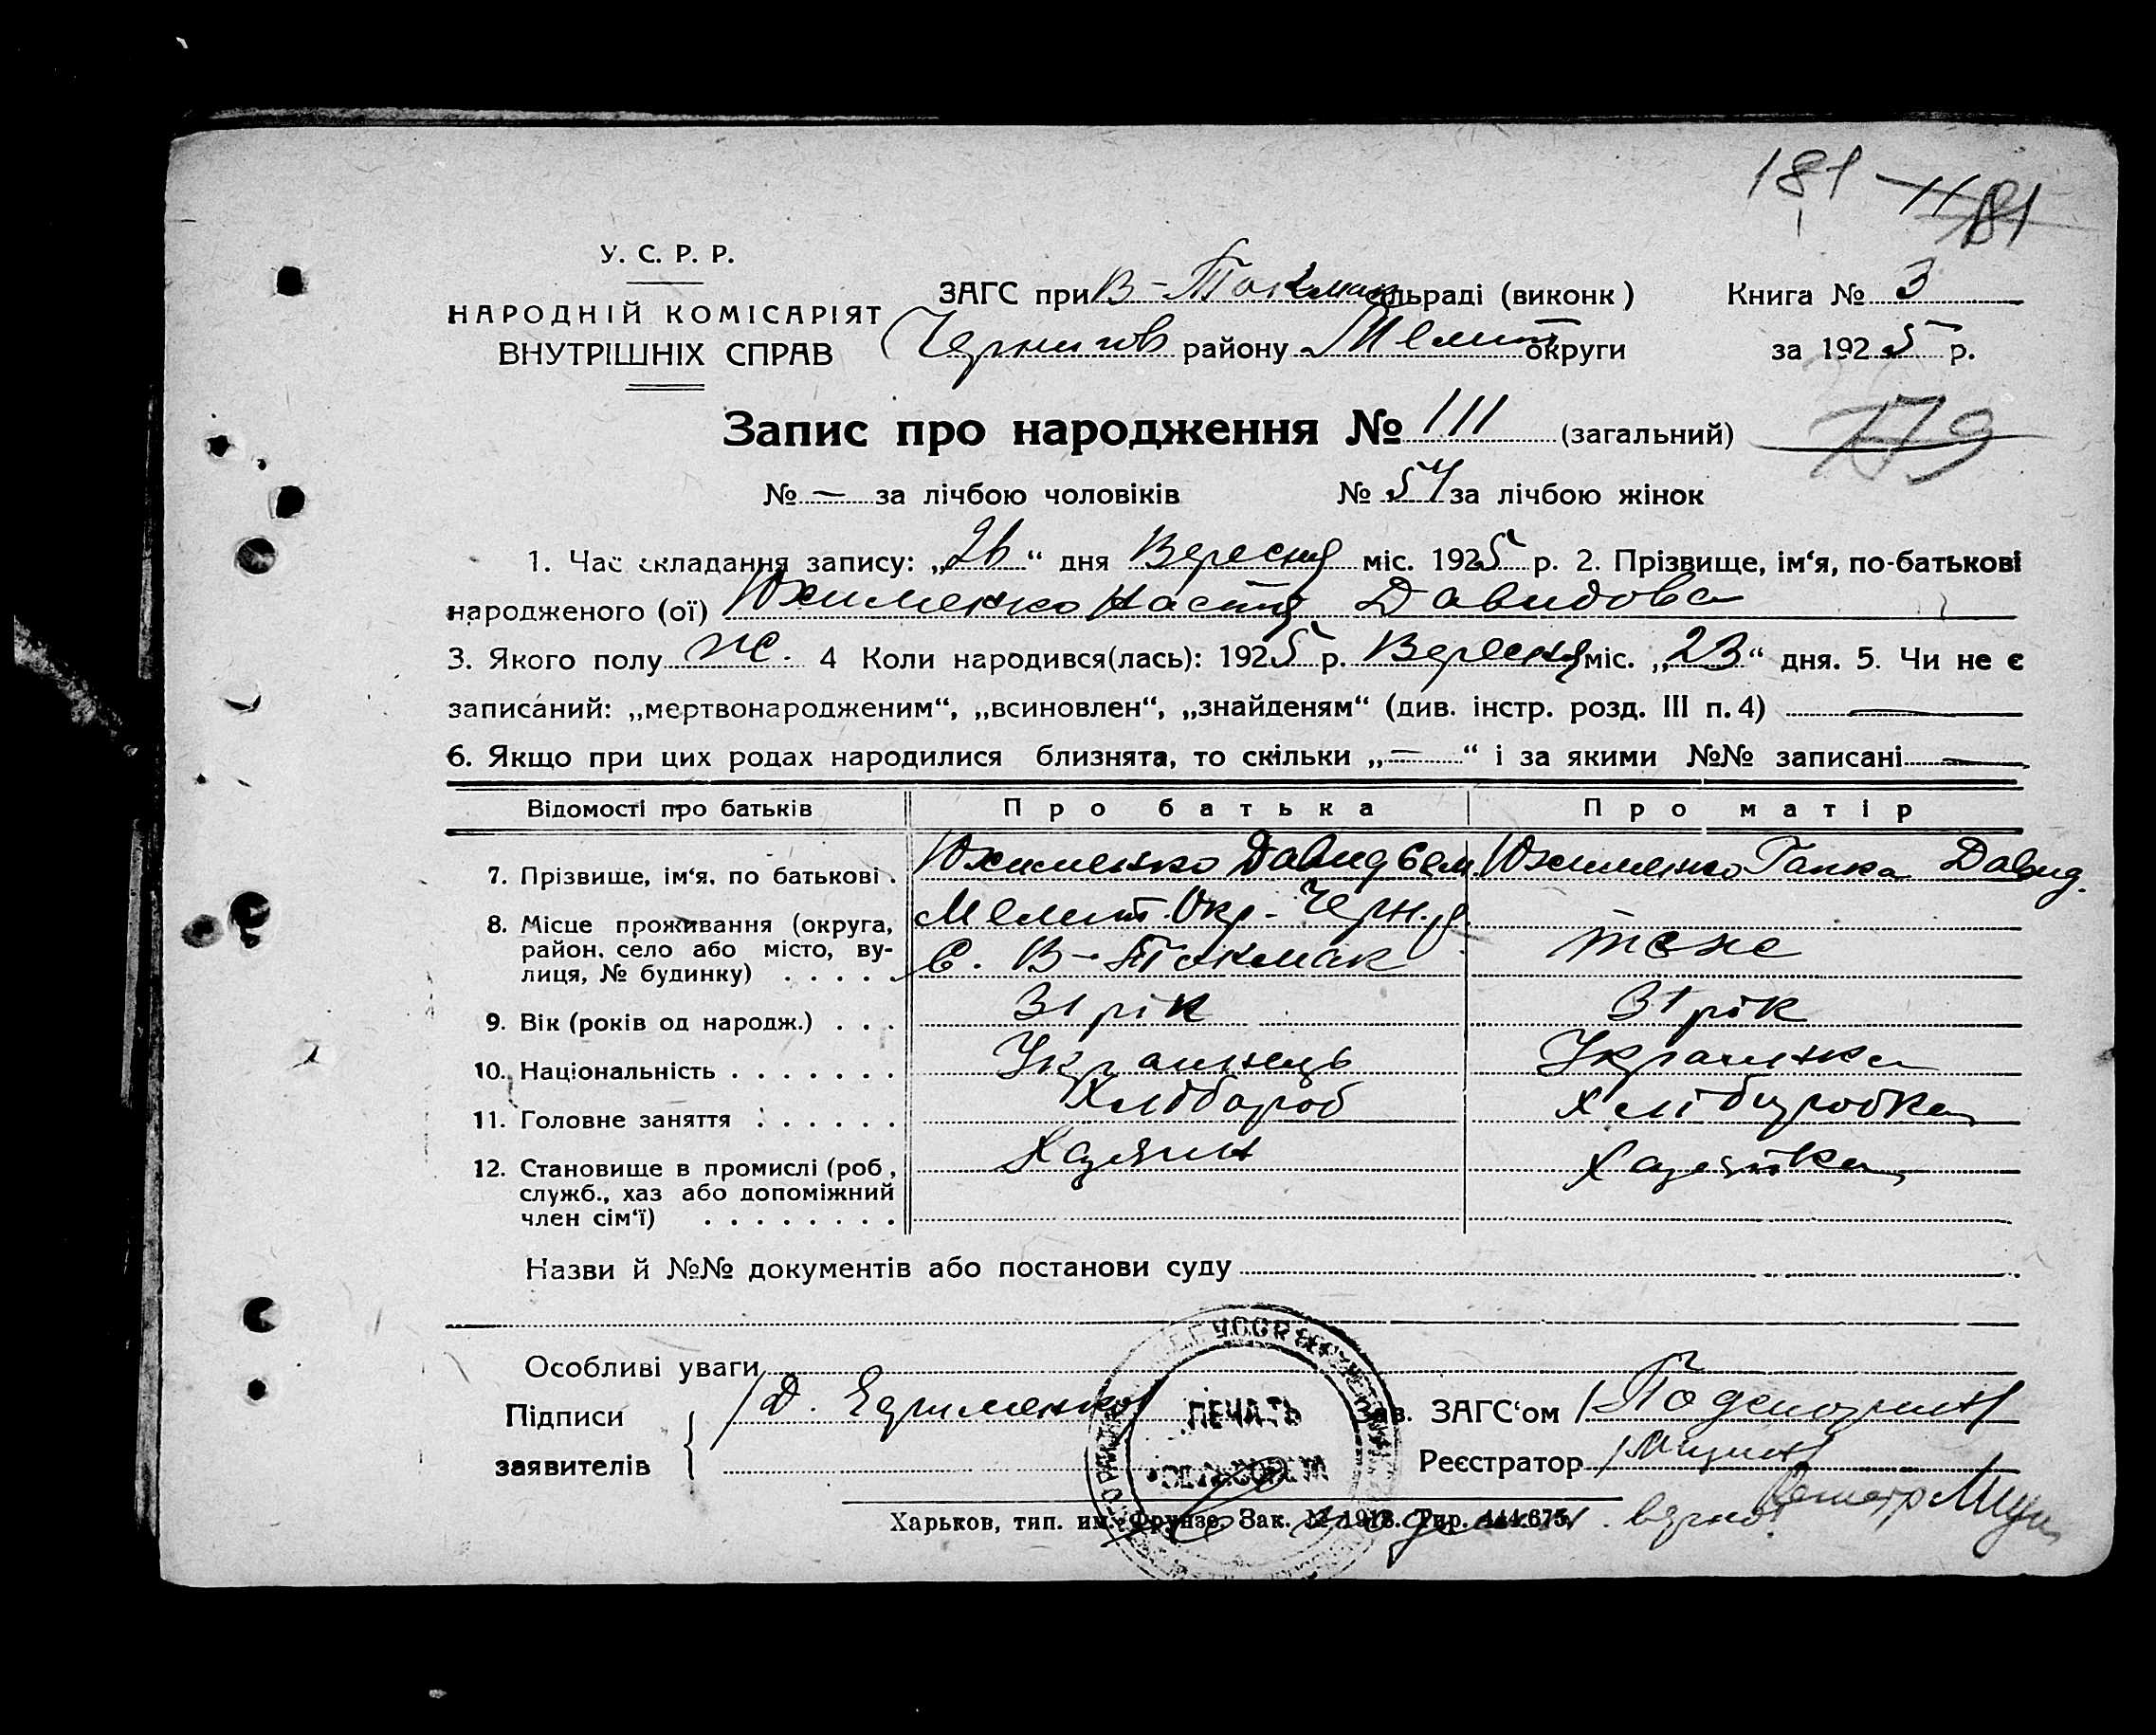 181 181
У. С. Р. Р.
НАРОДНІЙ КОМІСАРІЯТ
ВНУТРІШНІХ СПРАВ
ЗАГС при В-Токмак сільраді (виконк) Книга № 3
Чернигов району Мелит округи за 1925 р.
Запис про народження № 111 (загальний) 179
№ — за лічбою чоловіків № 54 за лічбою жінок
1. Час складання запису: „26“ дня Вересня міс. 1925 р. 2. Прізвище, ім‘я, по-батькові
народженого (ої) Юхименко Настя Давидова
3. Якого полу ж. 4 Коли народився(лась): 1925 р. Вересня міс. „23“ дня. 5. Чи не є
записаний: „мертвонародженим“, „всиновлен“, „знайденям“ (див. інстр. розд. III п. 4) —
6. Якщо при цих родах народилися близнята, то скільки „—“ і за якими №№ записані —
Відомості про батьків Про батька Про матір
7. Прізвище, ім‘я, по батькові . Юхименко Давид Сем. Юхименко Гапка Давид.
8. Місце проживання (округа, Мелит. Окр. Черн. р.
район, село або місто, ву- с. В-Токмак тоже
лиця, № будинку) . . . . .
9. Вік (років од народж.) . . . 31 рік 31 рік
10. Національність . . . . . . . Українець Українка
11. Головне заняття . . . . . . Хлібороб Хлібуробка
12. Становище в промислі (роб, Хазяин Хазяйка
служб., хаз або допоміжний
член сім‘ї) . . . . . . . .
Назви й №№ документів або постанови суду
Особливі уваги
Підписи Д. Ефименко ПЕЧАТЬ Зав. ЗАГС‘ом
заявителів Реєстратор
Харьков, тип. им. Фрунзе. Зак. № 1918. Тир. 444.675. верно: